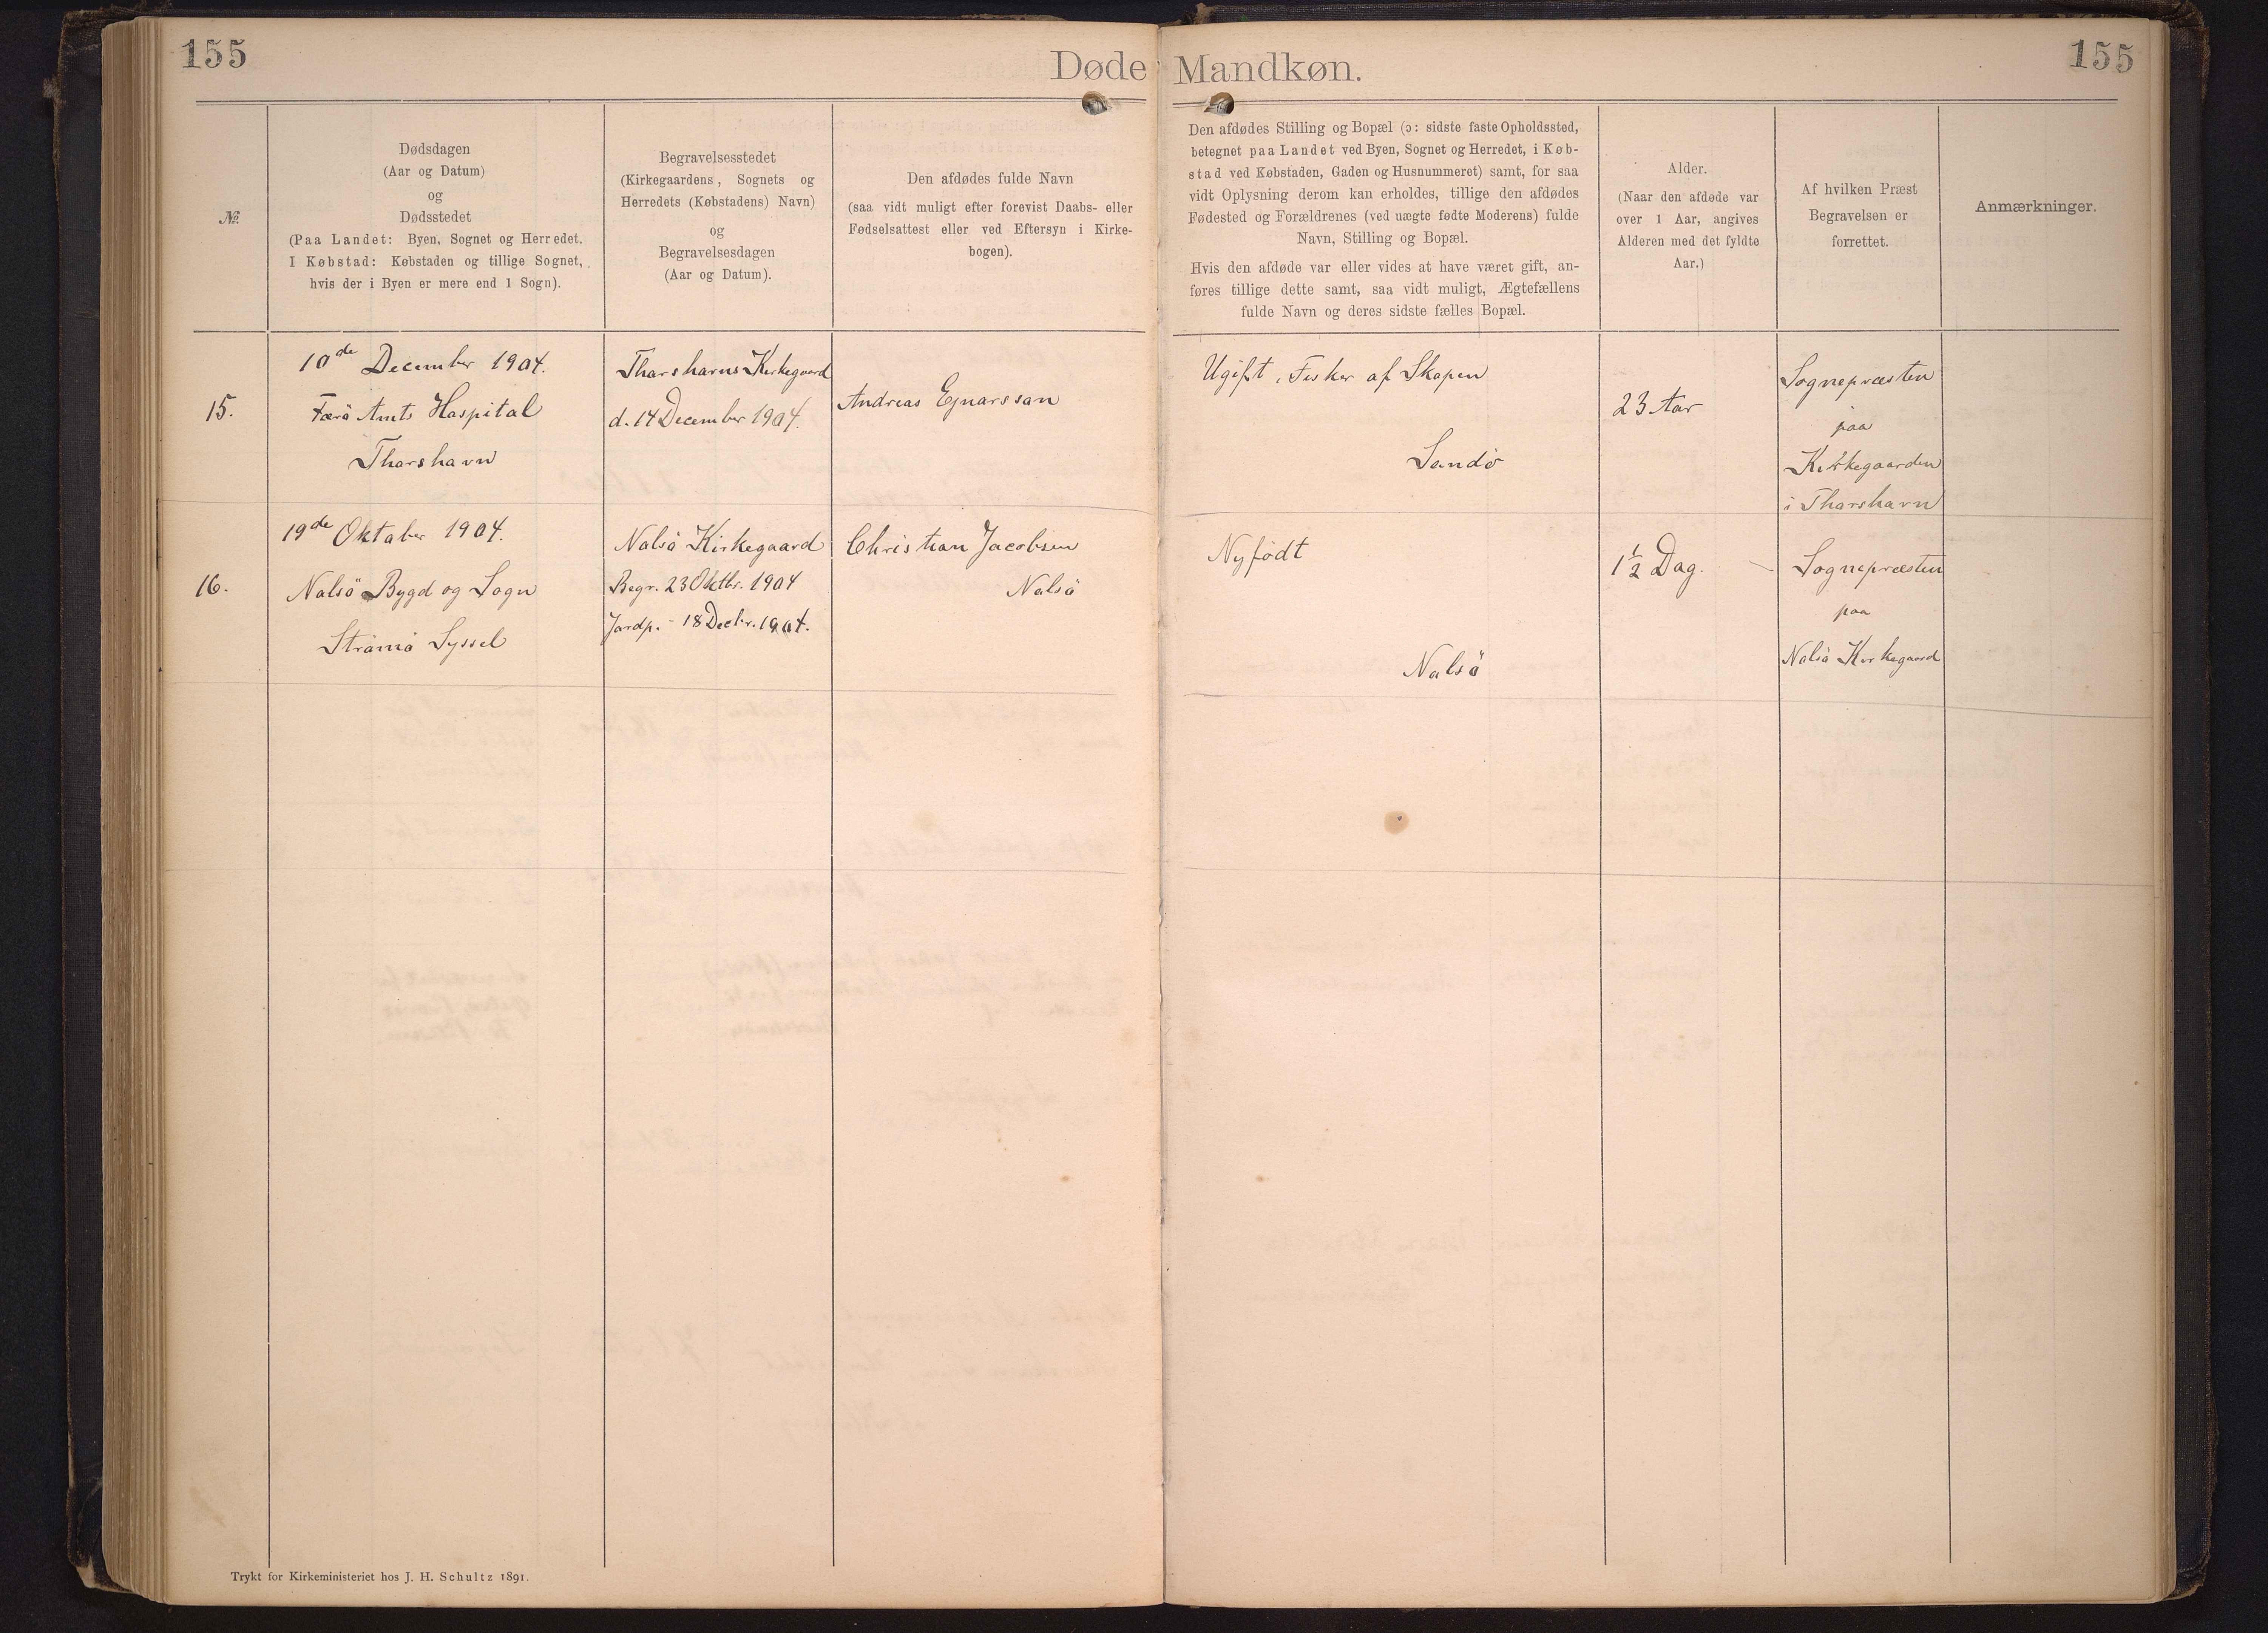 155
Døde Mandkøn.
155
№
Dødsdagen
(Aar og Datum)
og
Dødsstedet
(Paa Landet: Byen, Sognet og Herredet.
I Købstad: Købstaden og tillige Sognet,
hvis der i Byen er mere end 1 Sogn).
Begravelsesstedet
(Kirkegaardens, Sognets og
Herredets (Købstadens) Navn)
og
Begravelsesdagen
(Aar og Datum).
Den afdødes fulde Navn
(saa vidt muligt efter forevist Daabs- eller
Fødselsattest eller ved Eftersyn i Kirke-
bogen).
Den afdødes Stilling og Bopæl (ɔ: sidste faste Opholdssted,
betegnet paa Landet ved Byen, Sognet og Herredet, i Køb-
stad ved Købstaden, Gaden og Husnummeret) samt, for saa
vidt Oplysning derom kan erholdes, tillige den afdødes
Fødested og Forældrenes (ved uægte fødte Moderens) fulde
Navn, Stilling og Bopæl.
Hvis den afdøde var eller vides at have været gift, an-
føres tillige dette samt, saa vidt muligt, Ægtefællens
fulde Navn og deres sidste fælles Bopæl.
Alder.
(Naar den afdøde var
over 1 Aar, angives
Alderen med det fyldte
Aar.)
Af hvilken Præst
Begravelsen er
forrettet.
Anmærkninger.
15.
10de December 1904.
Færö Amts Hospital
Thorshavn
Thorshavns Kirkegaard
d. 14 December 1904.
Andreas Ejnarsson
Ugift, Fisker af Skopen
Sandö
23 Aar
Sognepræsten
paa
Kirkegaarden
i Thorshavn
16.
19de Oktober 1904.
Nolsö Bygd og Sogn
Strömö Syssel
Nolsö Kirkegaard
Begr. 23 Oktbr. 1904
Jordp. - 18 Decbr. 1904.
Christian Jacobsen
Nolsö
Nyfödt
Nolsö
1½ Dag.
Sognepræsten
paa
Nolsö Kirkegaard
Trykt for Kirkeministeriet hos J. H. Schultz 1891.